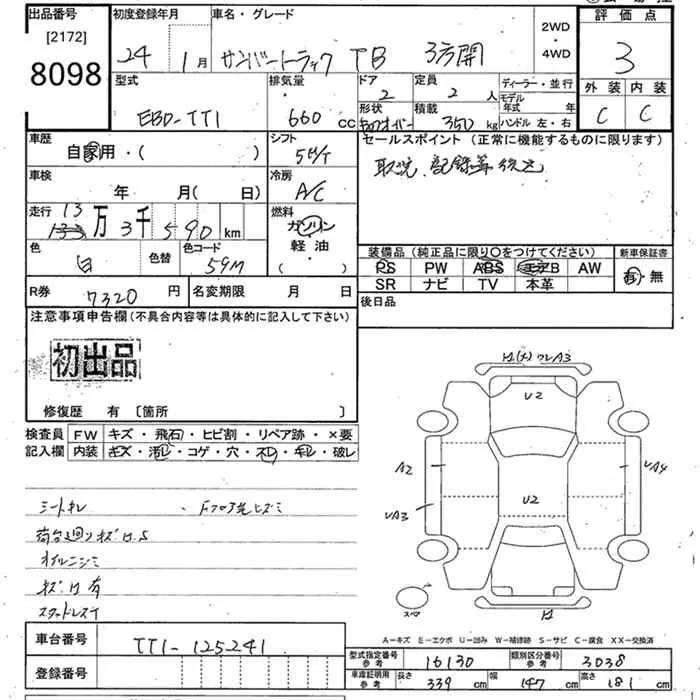 出品番号 初度登録年月 車名・グレード 評価点
[2172] 24年1月 サンバートラック TB 3方開 2WD・4WD 3
8098
型式 排気量 ドア 定員 ディーラー・並行 外装 内装
EBD-TT1 660cc 2 2人 モデル年式 年 C C
形状 積載 350kg ハンドル 左・右
車歴 シフト セールスポイント (正常に機能するものに限ります)
自家用・( ) 5M/T 取説、記録簿
車検 年 月( ) 冷房 A/C
走行 13万3千590km 燃料 ガソリン・軽油・( )
色 白 色替 色コード 59M
装備品 (純正品に限り○をつけてください) 新車保証書
PS PW ABS エアB AW 有・無
SR ナビ TV 本革
R券 7320円 名変期限 月 日 後日品
注意事項申告欄 (不具合内容等は具体的に記入して下さい)
初出品
修復歴 有 [箇所 ]
検査員記入欄 FW キズ・飛石・ヒビ割・リペア跡・×要
内装 キズ・汚レ・コゲ・穴・スレ・キレ・破レ
シートキレ
オイルニジミ
キズH有
スタッドレスT
U2
A2 UA4
UA3 U2
スペア
A-キズ E-エクボ U-凹み W-補修跡 S-サビ C-腐食 XX-交換済
車台番号 TT1-125241
登録番号
型式指定番号 参考 16130 類別区分番号 参考 3038
車庫証明用 参考 長さ 339cm 幅 147cm 高さ 181cm